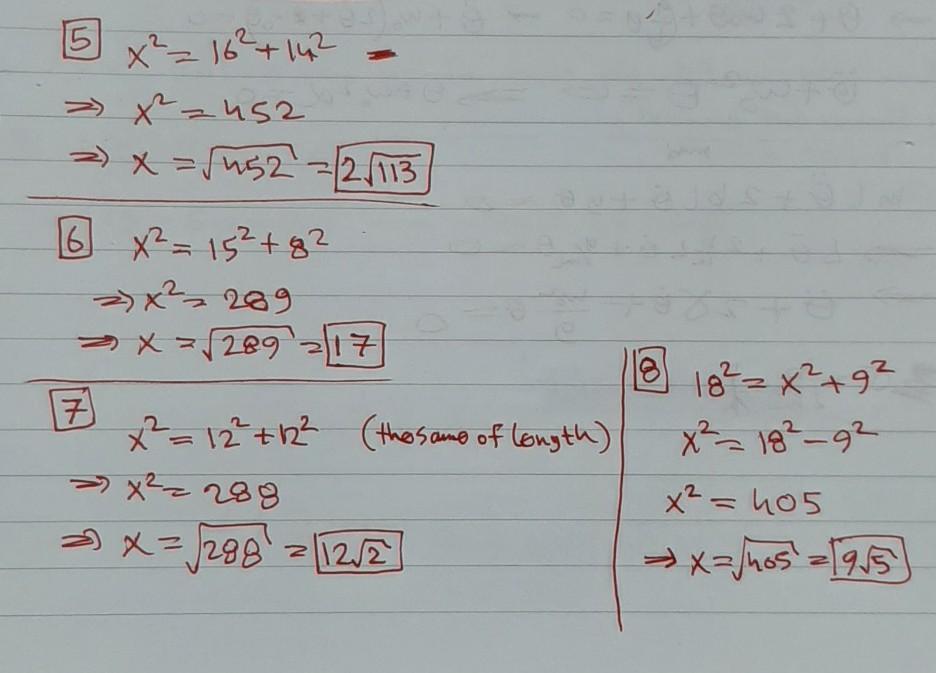 5 x² = 16² + 14² -
⇒ x² = 452
⇒ x = √452 = 2√113
6 x² = 15² + 8²
⇒ x² = 289
⇒ x = √289 = 17
7
x² = 12² + 12² (the same of length)
⇒ x² = 288
⇒ x = √288 = 12√2
8 18² = x² + 9²
x² = 18² - 9²
x² = 405
⇒ x = √405 = 9√5